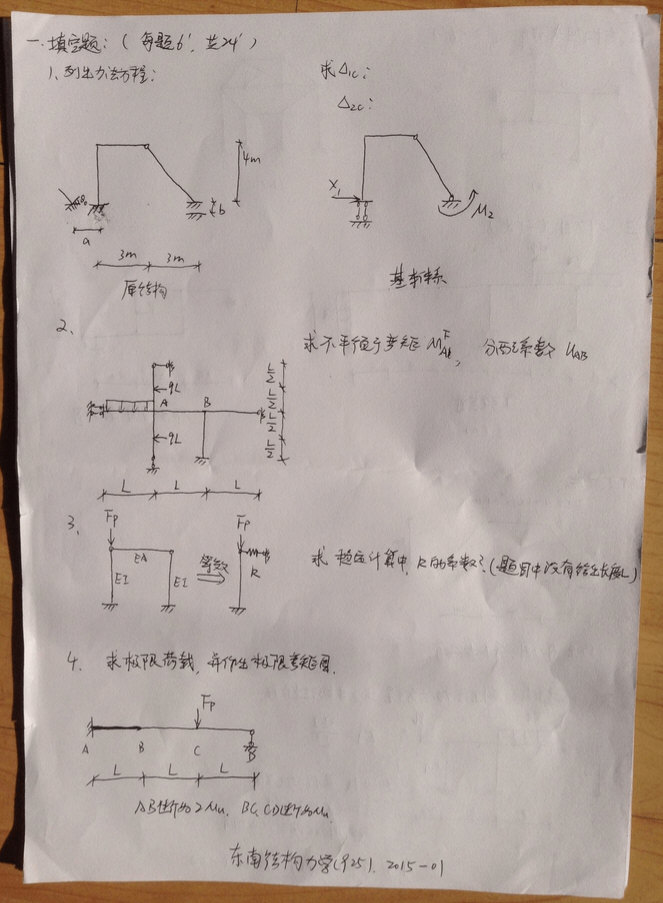 一、填空题：（每题6'，共24'）
1、列出力法方程：
求Δ1c：
Δ2c：
4m
b
a
3m 3m
原结构
X1
M2
基本体系
2、
求不平衡弯矩 M^F_AB，分配系数 μAB
qL
A B
qL
L/2
L/2
L/2
L/2
L L L
3、
Fp Fp
EA
EI EI
等效
k
求 稳定计算中，k的系数？（题目中没有给出长度L）
4、求极限荷载，并作出极限弯矩图.
Fp
A B C D
L L L
AB段为2Mu，BC、CD段为Mu
东南结构力学(925)，2015-01